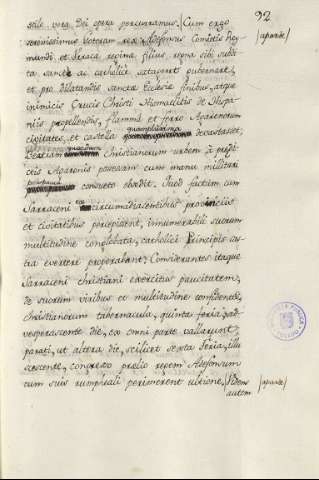 92
stile vera Dei opera percurramus. Cum ergo (aparte)
serenissimus votorum rex Ildefonsus Comitis Rey
mundi, et Urraca regina filius, regna sibi subdi
ta, sancte ac catholicè satageret gubernare,
et pro dilatandis sancta Ecclesiæ finibus, atque
inimicis Crucis Christi Hismaelitis de Hispa
niis propellendis, flamma et ferro Agarenorum
quamplurima
civitates, et castella devastasset;
quandam
Christianorum urbem à præd
ctis Agarenis possessam cum manu militari
concreto obsedit. Quod factum cum
Sarraceni circumadiacentibus provinciis
et civitatibus percepissent, innumerabili suorum
multitudine conglobata, catholici Principis cas
tra evertere properabant: Considerantes itaque
Sarraceni christiani exercitus paucitatem,
de suorum viribus et multitudine confidentes,
christianorum tabernacula, quinta feria, jad
vesperascente die, ex omni parte vallarunt,
parati, ut altera die, scilicet sexta feria, illu
cescente, congresso prelio regem Adefonsum
cum suis rumpheali perimerent ultione, /Videns (aparte)
autem